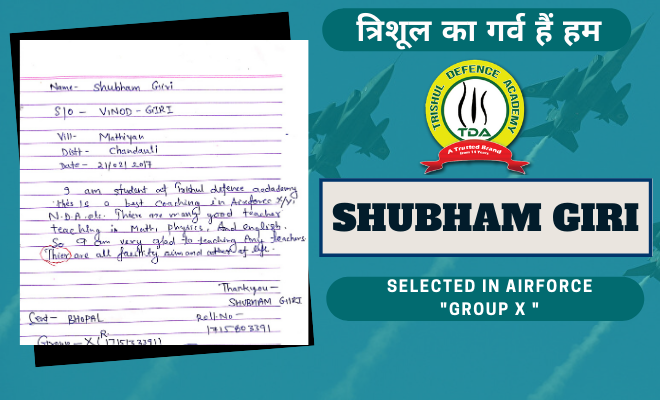 Name- Shubham Girvi
S/O - VINOD - GIRI
Vill- Mathiyan
Distt- Chandauli
Date - 21/02/2017
I am student of Trishul defence acdademy
this is a best coaching in Airforce X/Y,
N.D.A. etc. There are many good teacher
teaching is Math, Physics, And english.
So I am very glad to teaching Any teachers
Thier are all facility aim and other of life.
Thankyou-
SHUBHAM GIIRI
Cent- BHOPAL
Roll.No-
1715803391
Group - X (
त्रिशूल का गर्व हैं हम
TRISHUL DEFENCE ACADEMY
TDA
A Trusted Brand
from 14 Years
SHUBHAM GIRI
SELECTED IN AIRFORCE
"GROUP X "